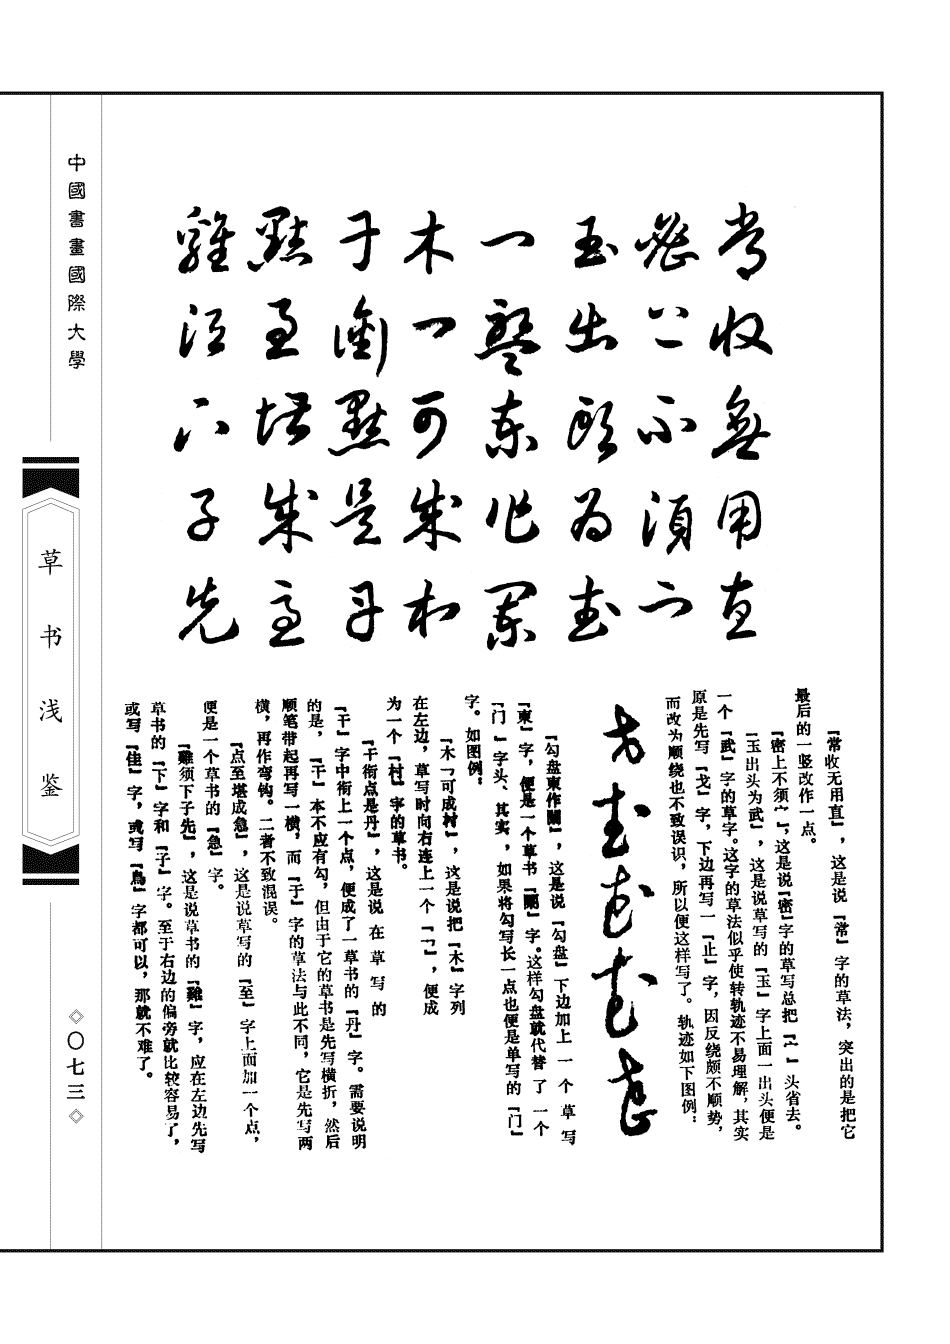 常收無用直
密上不須宀
玉出頭為武
一盤柬作闌
木一可成村
干銜點是丹
點至堪成急
難須下子先
『常收无用直』，这是说『常』字的草法，突出的是把它
最后的一竖改作一点。
『密上不须宀』，这是说『密』字的草写总把『宀』头省去。
『玉出头为武』，这是说草写的『玉』字上面一出头便是
一个『武』字的草字。这字的草法似乎使转轨迹不易理解，其实
原是先写『戈』字，下边再写一『止』字，因反绕颇不顺势，
而改为顺绕也不致误识，所以便这样写了。轨迹如下图例：
『勾盘柬作闌』，这是说『勾盘』下边加上一个草写
『柬』字，便是一个草书『闌』字。这样勾盘就代替了一个
『门』字头、其实，如果将勾写长一点也便是单写的『门』
字。如图例：
『木乛可成村』，这是说把『木』字列
在左边，草写时向右连上一个『乛』，便成
为一个『村』字的草书。
『干衔点是丹』，这是说在草写的
『干』字中衔上一个点，便成了一草书的『丹』字。需要说明
的是，『干』本不应有勾，但由于它的草书是先写横折，然后
顺笔带起再写一横，而『于』字的草法与此不同，它是先写两
横，再作弯钩。二者不致混误。
『点至堪成急』，这是说草写的『至』字上面加一个点，
便是一个草书的『急』字。
『難须下子先』，这是说草书的『難』字，应在左边先写
草书的『下』字和『子』字。至于右边的偏旁就比较容易了，
或写『隹』字，或写『鳥』字都可以，那就不难了。
中國書畫國際大學
草书浅鉴
◇〇七三◇